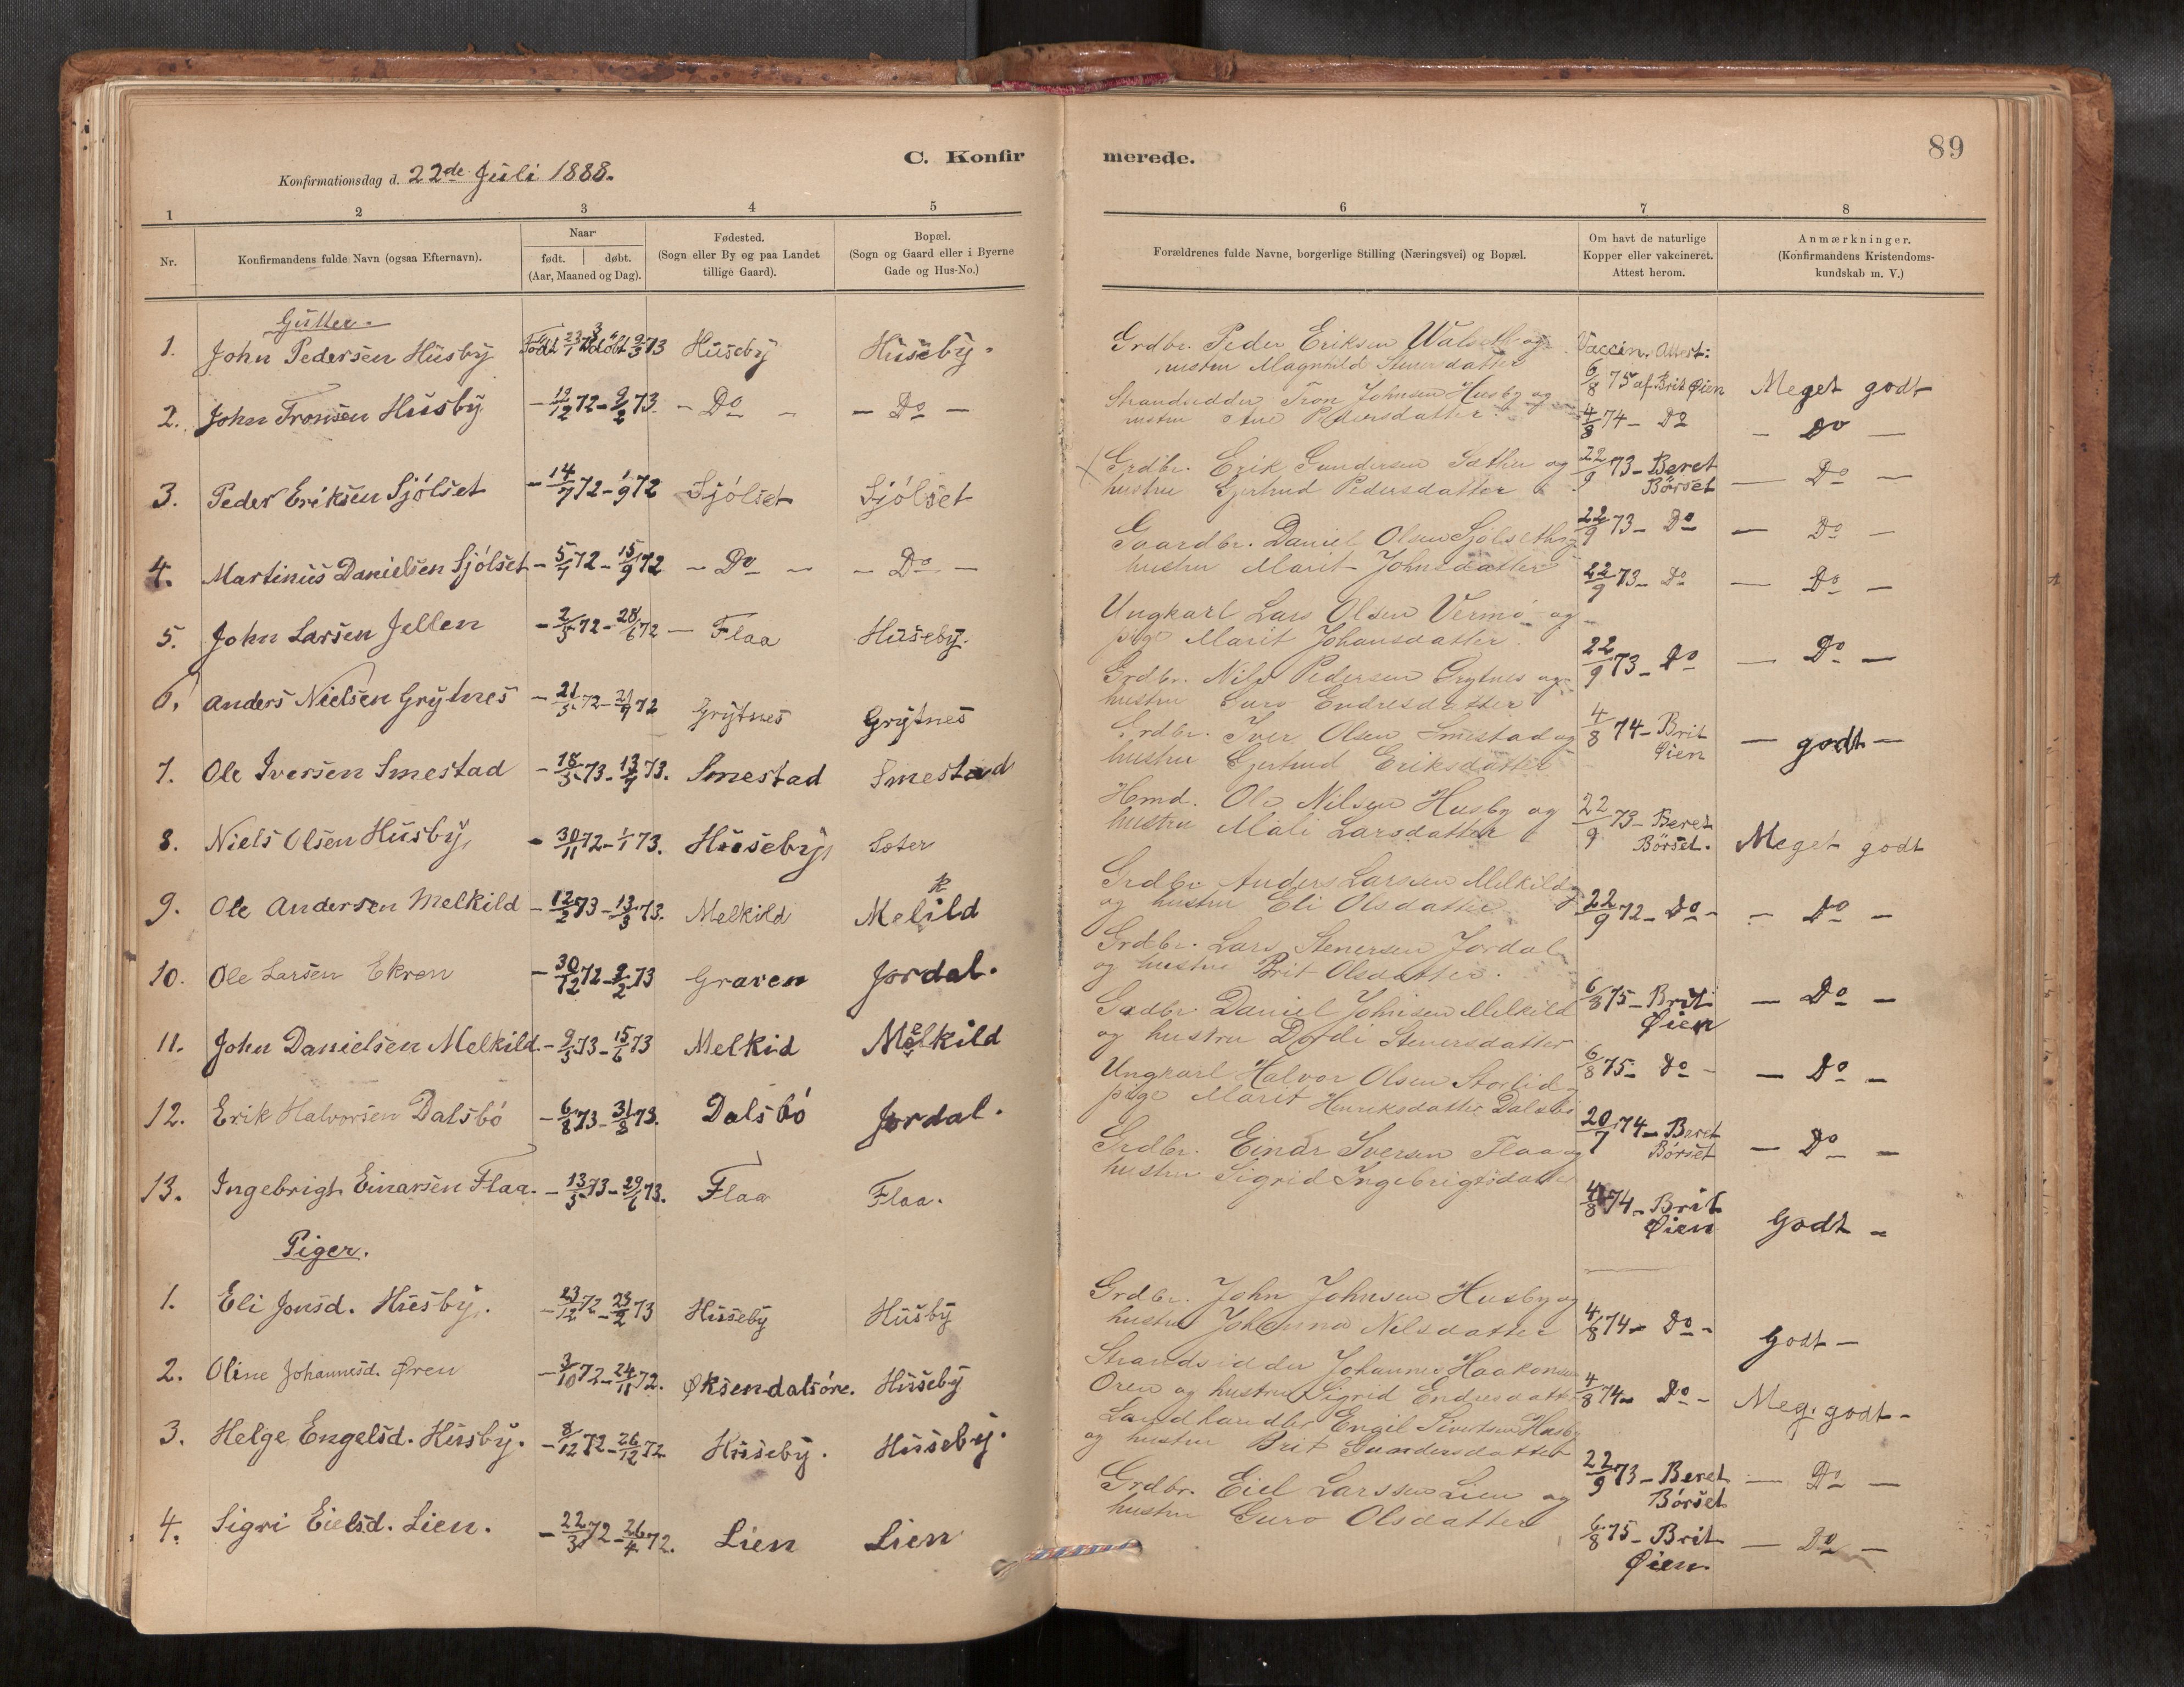 C. Konfirmerede.
89
Konfirmationsdag d. 22de Juli 1888.
1 2 3 4 5 6 7 8
Nr.
Konfirmandens fulde Navn (ogsaa Efternavn).
Naar
født. døbt.
(Aar, Maaned og Dag).
Fødested.
(Sogn eller By og paa Landet
tillige Gaard).
Bopæl.
(Sogn og Gaard eller i Byerne
Gade og Hus-No.)
Forældrenes fulde Navne, borgerlige Stilling (Næringsvei) og Bopæl.
Om havt de naturlige
Kopper eller vakcineret.
Attest herom.
Anmærkninger.
(Konfirmandens Kristendoms-
kundskab m. V.)
Gutter.
1. John Pedersen Husby Huseby Huseby.
Grdbr. Peder Eriksen Walseth og
hustru Magnhild Stenersdatter
Vaccin. Attest:
6/8 75 af Brit Øien Meget godt
2. John Tronsen Husby - 12/12 72 - 9/2 73 - Do - - Do -
Strandsidder Tron Johnsen Husby og
hustru Ane Pedersdatter
4/8 74 - Do - Do -
3. Peder Eriksen Sjólset - 14/7 72 - 1/9 72 Sjólset Sjólset
Grdbr. Erik Gundersen Sæther og
hustru Gjertrud Pedersdatter
22/9 73 - Beret Börset - Do -
4. Martinus Danielsen Sjólset - 5/7 72 - 15/9 72 - Do - - Do -
Gaardbr. Daniel Olsen Sjólseth og
hustru Marit Johnsdatter
22/9 73 - Do - Do -
5. John Larsen Jellen - 2/5 72 - 28/6 72 - Flaa Huseby.
Ungkarl Lars Olsen Vermö og
pige Marit Johansdatter.
22/9 73 - Do - Do -
6. Anders Nielsen Grytnes - 21/5 72 - 21/9 72 Grytnes Grytnes
Grdbr. Nils Pedersen Grytnes og
hustru Guro Endresdatter
22/9 73 - Do - Do -
7. Ole Iversen Smestad - 18/5 73 - 13/7 73. Smestad Smestad
Grdbr. Iver Olsen Smestad og
hustru Gjertrud Eriksdatter
4/8 74 - Brit Øien - godt -
8. Niels Olsen Husby, - 30/11 72 - 1/1 73. Huseby, Sæter
Hmd. Ole Nilsen Husby og
hustru Mali Larsdatter
22/9 73 - Beret Börset. Meget godt
9. Ole Andersen Melkild - 12/2 73 - 13/3 73. Melkild Melkild
Grdbr. Anders Larsen Melkild
og hustru Eli Olsdatter
22/9 72 - Do - - Do -
10. Ole Larsen Ekren - 30/12 72 - 2/2 73 Graven Jordal.
Grdbr. Lars Stenersen Jordal
og hustru Brit Olsdatter.
6/8 75 - Brit Øien - Do -
11. John Danielsen Melkild. - 9/5 73 - 15/6 73 Melkid Melkild
Grdbr. Daniel Johnsen Melkild
og hustru Dordi Stenersdatter
6/8 75 - Do - - Do -
12. Erik Halvorsen Dalsbó - 6/8 73 - 31/8 73. Dalsbó Jordal.
Ungkarl Halvor Olsen Storlid
pige Marit Henriksdatter Dalsbö
20/7 74 - Beret Börset - Do -
13. Ingebrigt Einarsen Flaa. - 13/5 73 - 29/6 73. Flaa Flaa.
Grdbr. Einar Iversen Flaa og
hustru Sigrid Ingebrigtsdatter
4/8 74 - Brit Øien Godt -
Piger.
1. Eli Jonsd. Husby. - 23/12 72 - 23/2 73 Huseby Husby
Grdbr. John Johnsen Husby og
hustru Johanna Nilsdatter
4/8 74 - Do - Godt -
2. Oline Johannesd. Øren - 3/10 72 - 24/11 72. Øksendalsóre. Huseby
Strandsidder Johannes Haakonsen
Ören og hustru Sigrid Endresdatter
4/8 74 - Do - Meg. godt -
3. Helge Engelsd. Husby. - 8/12 72 - 26/12 72. Huseby. Huseby.
Landhandler Engil Sivertsen Husby
og hustru Brit Gundersdatter
22/9 73 - Beret Börset - Do -
4. Sigri Eielsd. Lien. - 22/3 72 - 26/4 72. Lien Lien
Grdbr. Eiel Larssen Lien og
hustru Guro Olsdatter
6/8 75 - Brit Øien. - Do -